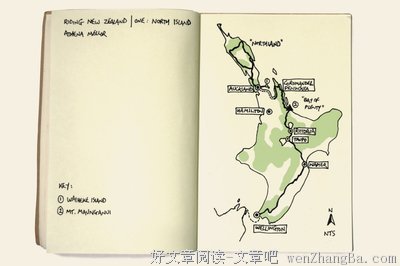 RIDING NEW ZEALAND | ONE: NORTH ISLAND
ATHENA MELLOR
KEY:
① WAIHEKE ISLAND
② MT. MAUNGANUI
"NORTHLAND"
AUCKLAND
①
COROMANDEL
PENINSULA
②
"BAY OF
PLENTY"
HAMILTON
ROTORUA
TAUPO
NAPIER
WELLINGTON
N
NTS
好文章阅读-文章吧 wenZhangBa.com